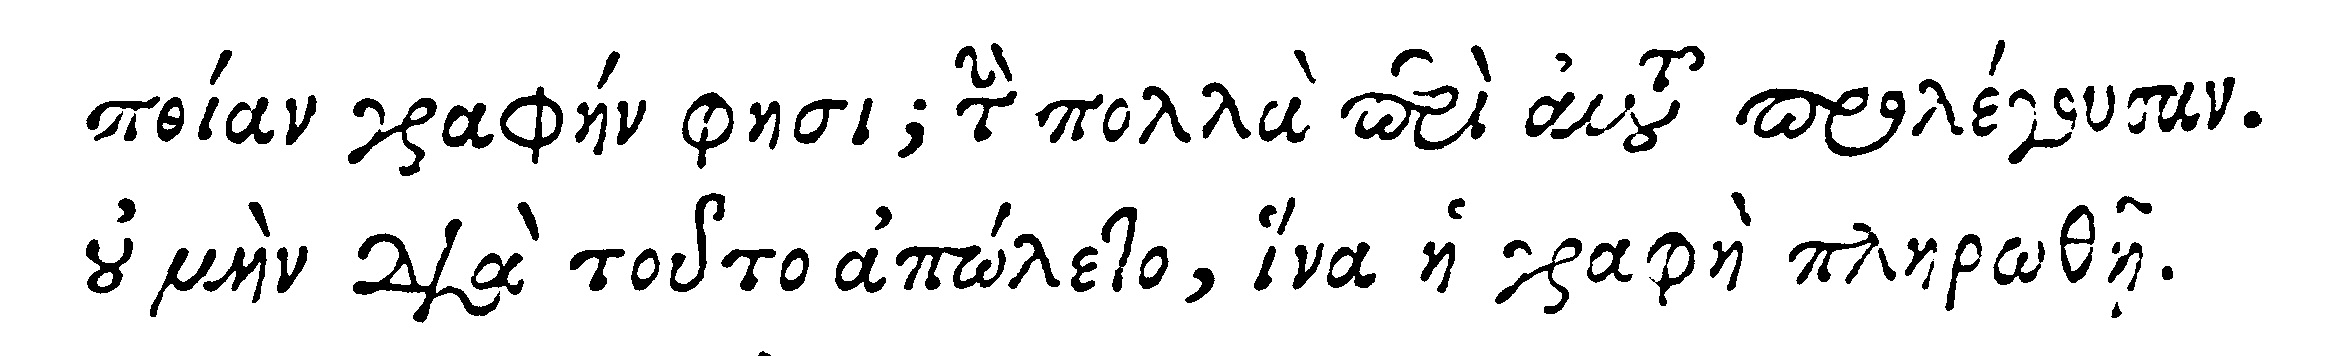 ποίαν γραφήν φησι; τὴν πολλὰ περὶ αὐτοῦ προλέγουσαν.
οὐ μὴν διὰ τοῦτο ἀπώλετο, ἵνα ἡ γραφὴ πληρωθῇ.